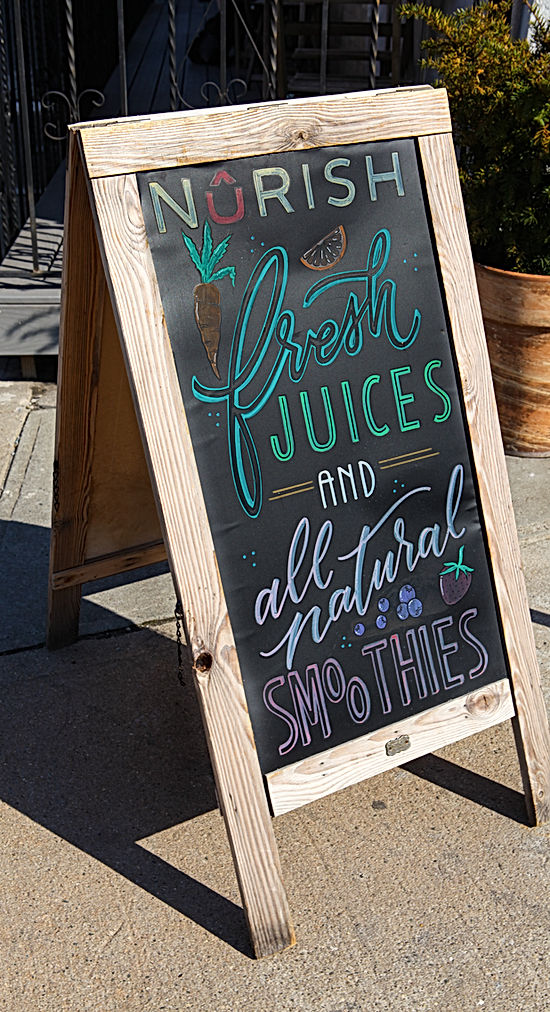 NÛRISH
fresh
JUICES
AND
all
natural
SMOOTHIES